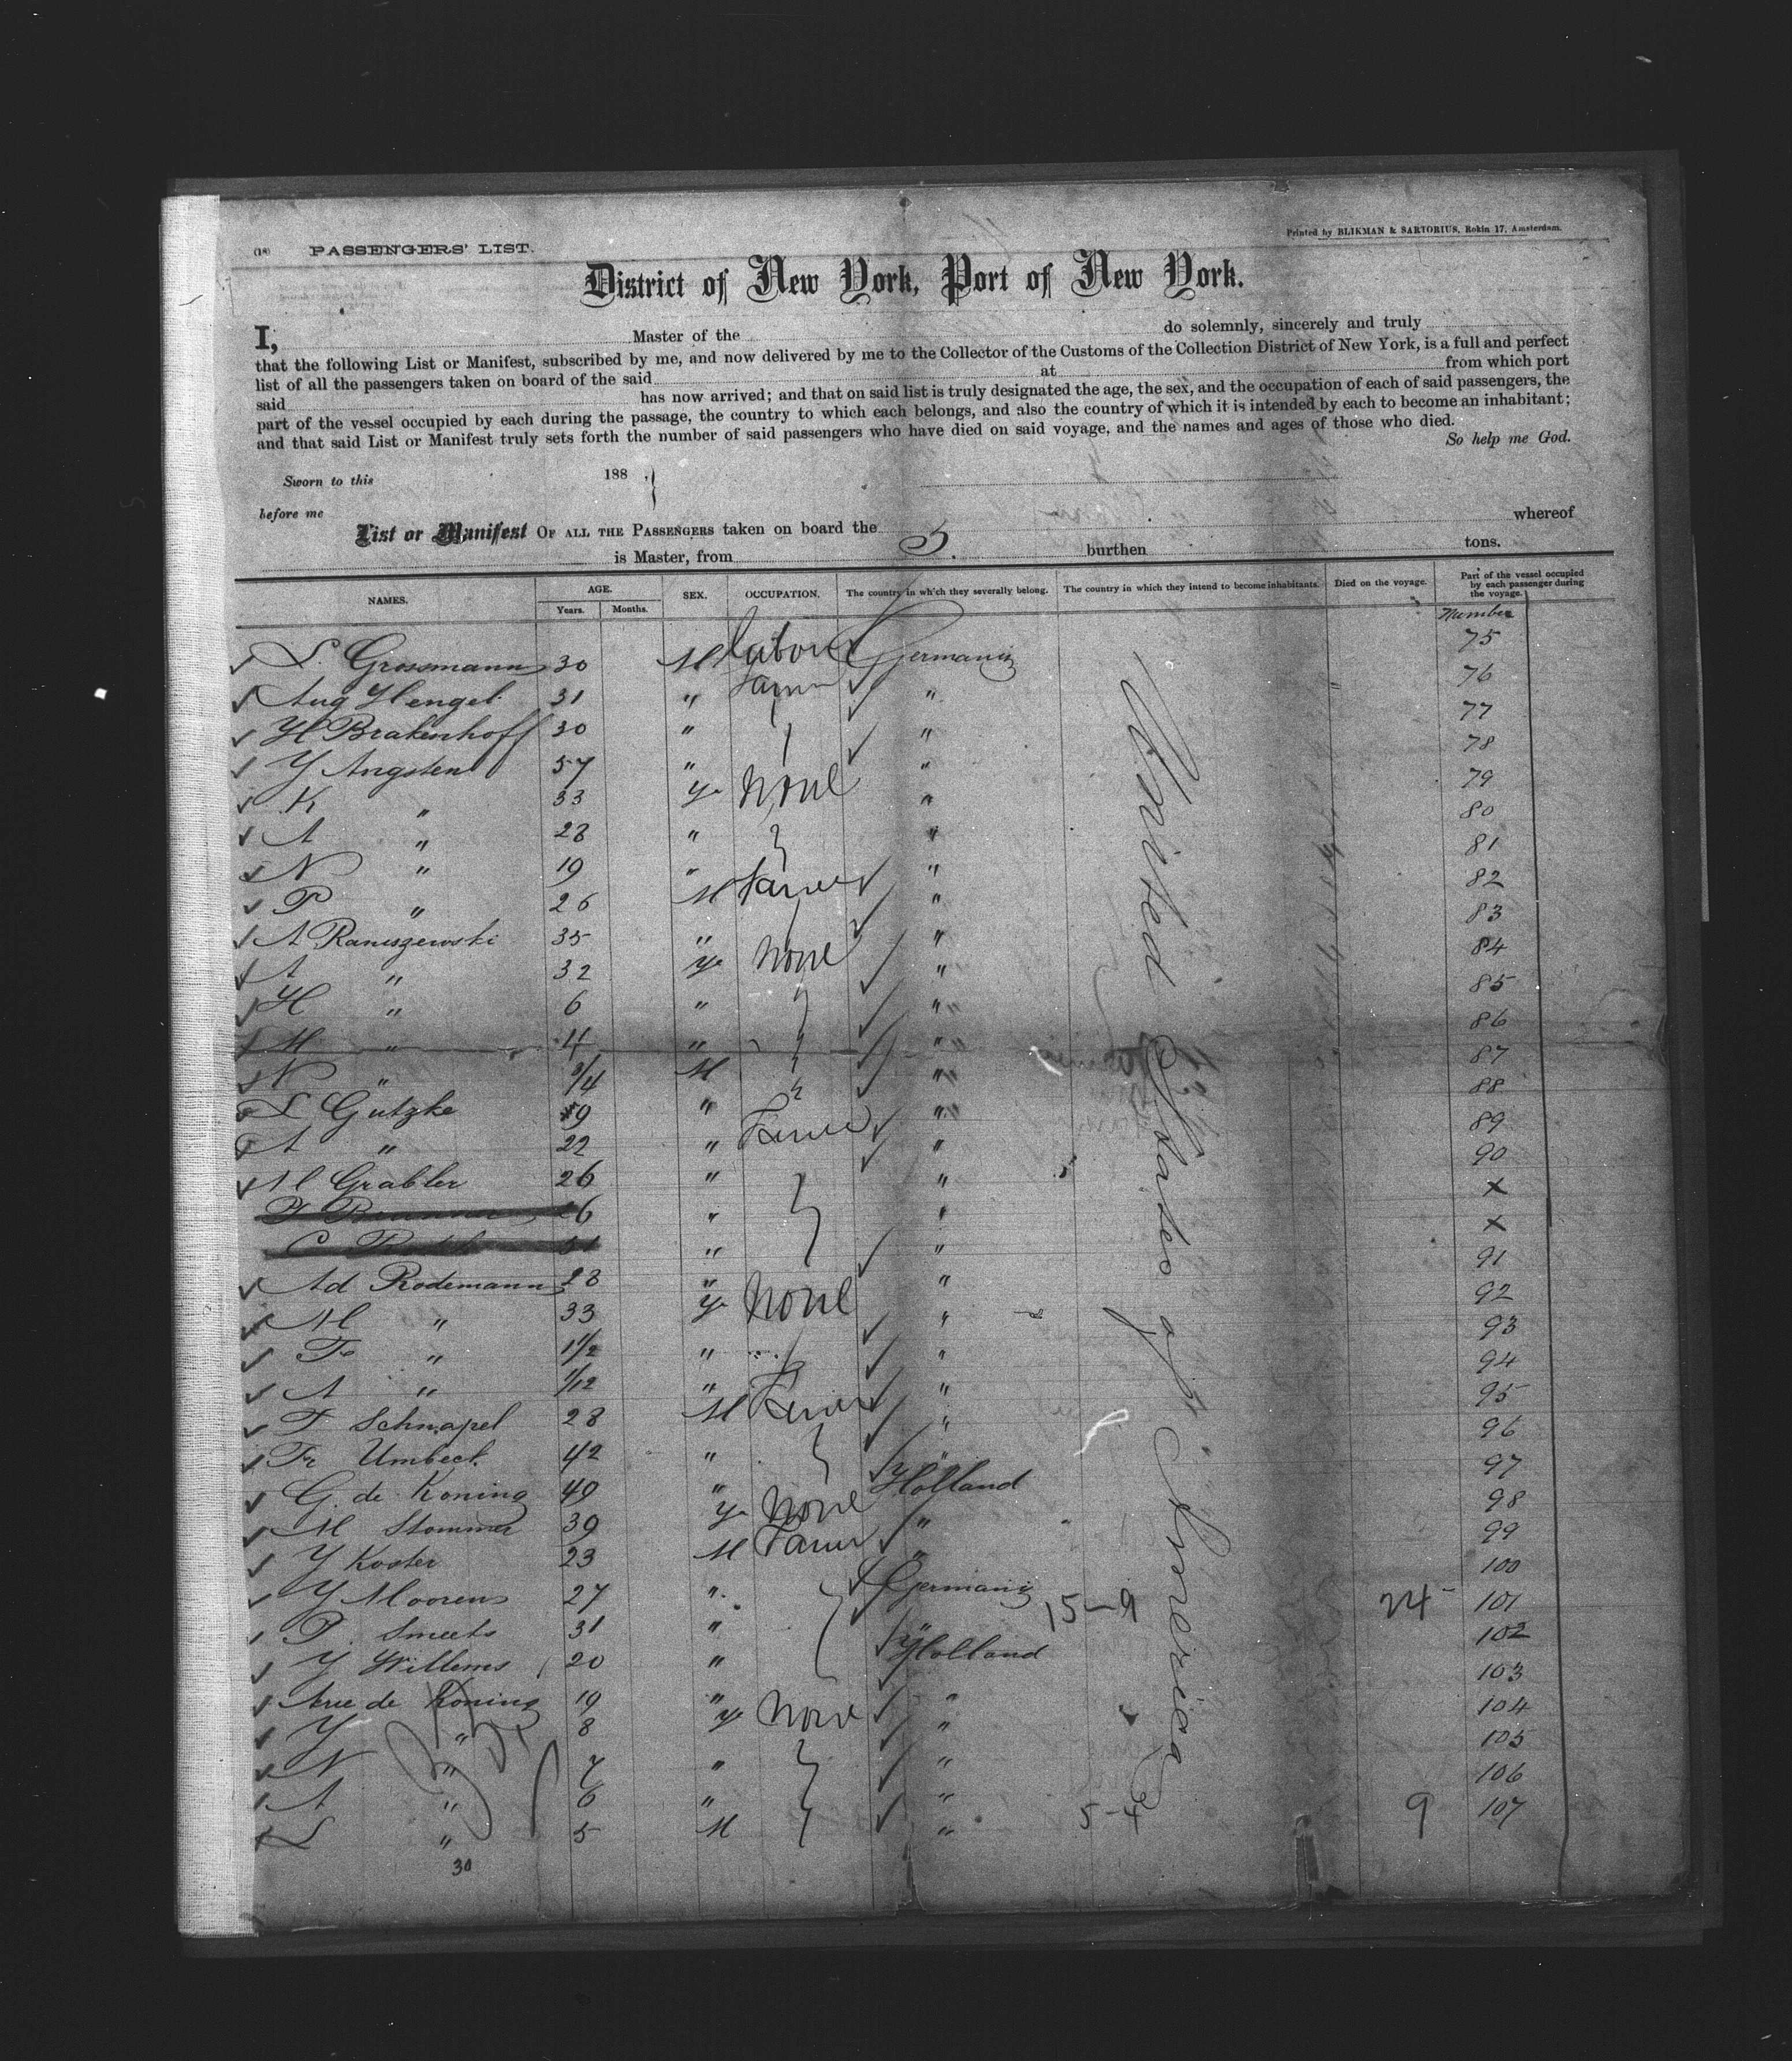 (18) PASSENGERS' LIST. Printed by BLIKMAN & SARTORIUS, Rokin 17, Amsterdam.
District of New York, Port of New York.
I, Master of the do solemnly, sincerely and truly
that the following List or Manifest, subscribed by me, and now delivered by me to the Collector of the Customs of the Collection District of New York, is a full and perfect
list of all the passengers taken on board of the said at from which port
said has now arrived; and that on said list is truly designated the age, the sex, and the occupation of each of said passengers, the
part of the vessel occupied by each during the passage, the country to which each belongs, and also the country of which it is intended by each to become an inhabitant;
and that said List or Manifest truly sets forth the number of said passengers who have died on said voyage, and the names and ages of those who died.
So help me God.
Sworn to this 188 .
before me
List or Manifest OF ALL THE PASSENGERS taken on board the whereof
is Master, from 5. burthen tons.
NAMES. AGE. Years. Months. SEX. OCCUPATION. The country in wh'ch they severally belong. The country in which they intend to become inhabitants. Died on the voyage. Part of the vessel occupied by each passenger during the voyage.
Number
L. Grossmann 30 M Labore Germania 75
Aug Hengel 31 " Farm " 76
H Brakenhoff 30 " " 77
Y Angsten 57 " " 78
K " 33 Ye None " 79
A " 28 " " 80
N " 19 " " 81
P " 26 M Farmer " 82
A Raniszewski 35 " " 83
A " 32 Ye None " 84
H " 6 " " 85
M " 4 " " 86
N " 9/4 M " 87
L Gutzke 59 " " 88
A " 22 " Farmer " 89
M Grabler 26 " " 90
26 " " x
" " x
Ad Rodemann 28 " " 91
M " 33 Ye None " 92
Fr " 1 1/2 " " 93
A " 1/12 " " 94
F Schnapel 28 M Farmer " 95
Fr Umbeck 42 " " 96
G. de Koning 49 " Holland 97
M Stommer 39 Ye None " 98
Y Koster 23 M Farm " 99
Y Moorens 27 " Germania 100
P. Smeets 31 " " 15-9 24 101
Y Willems 20 " Holland 102
Arie de Koning 19 " " 103
Y " 8 Ye None " 104
N " 7 " " 105
A " 6 " " 106
L " 5 M " 5-4 9 107
30
United States of America